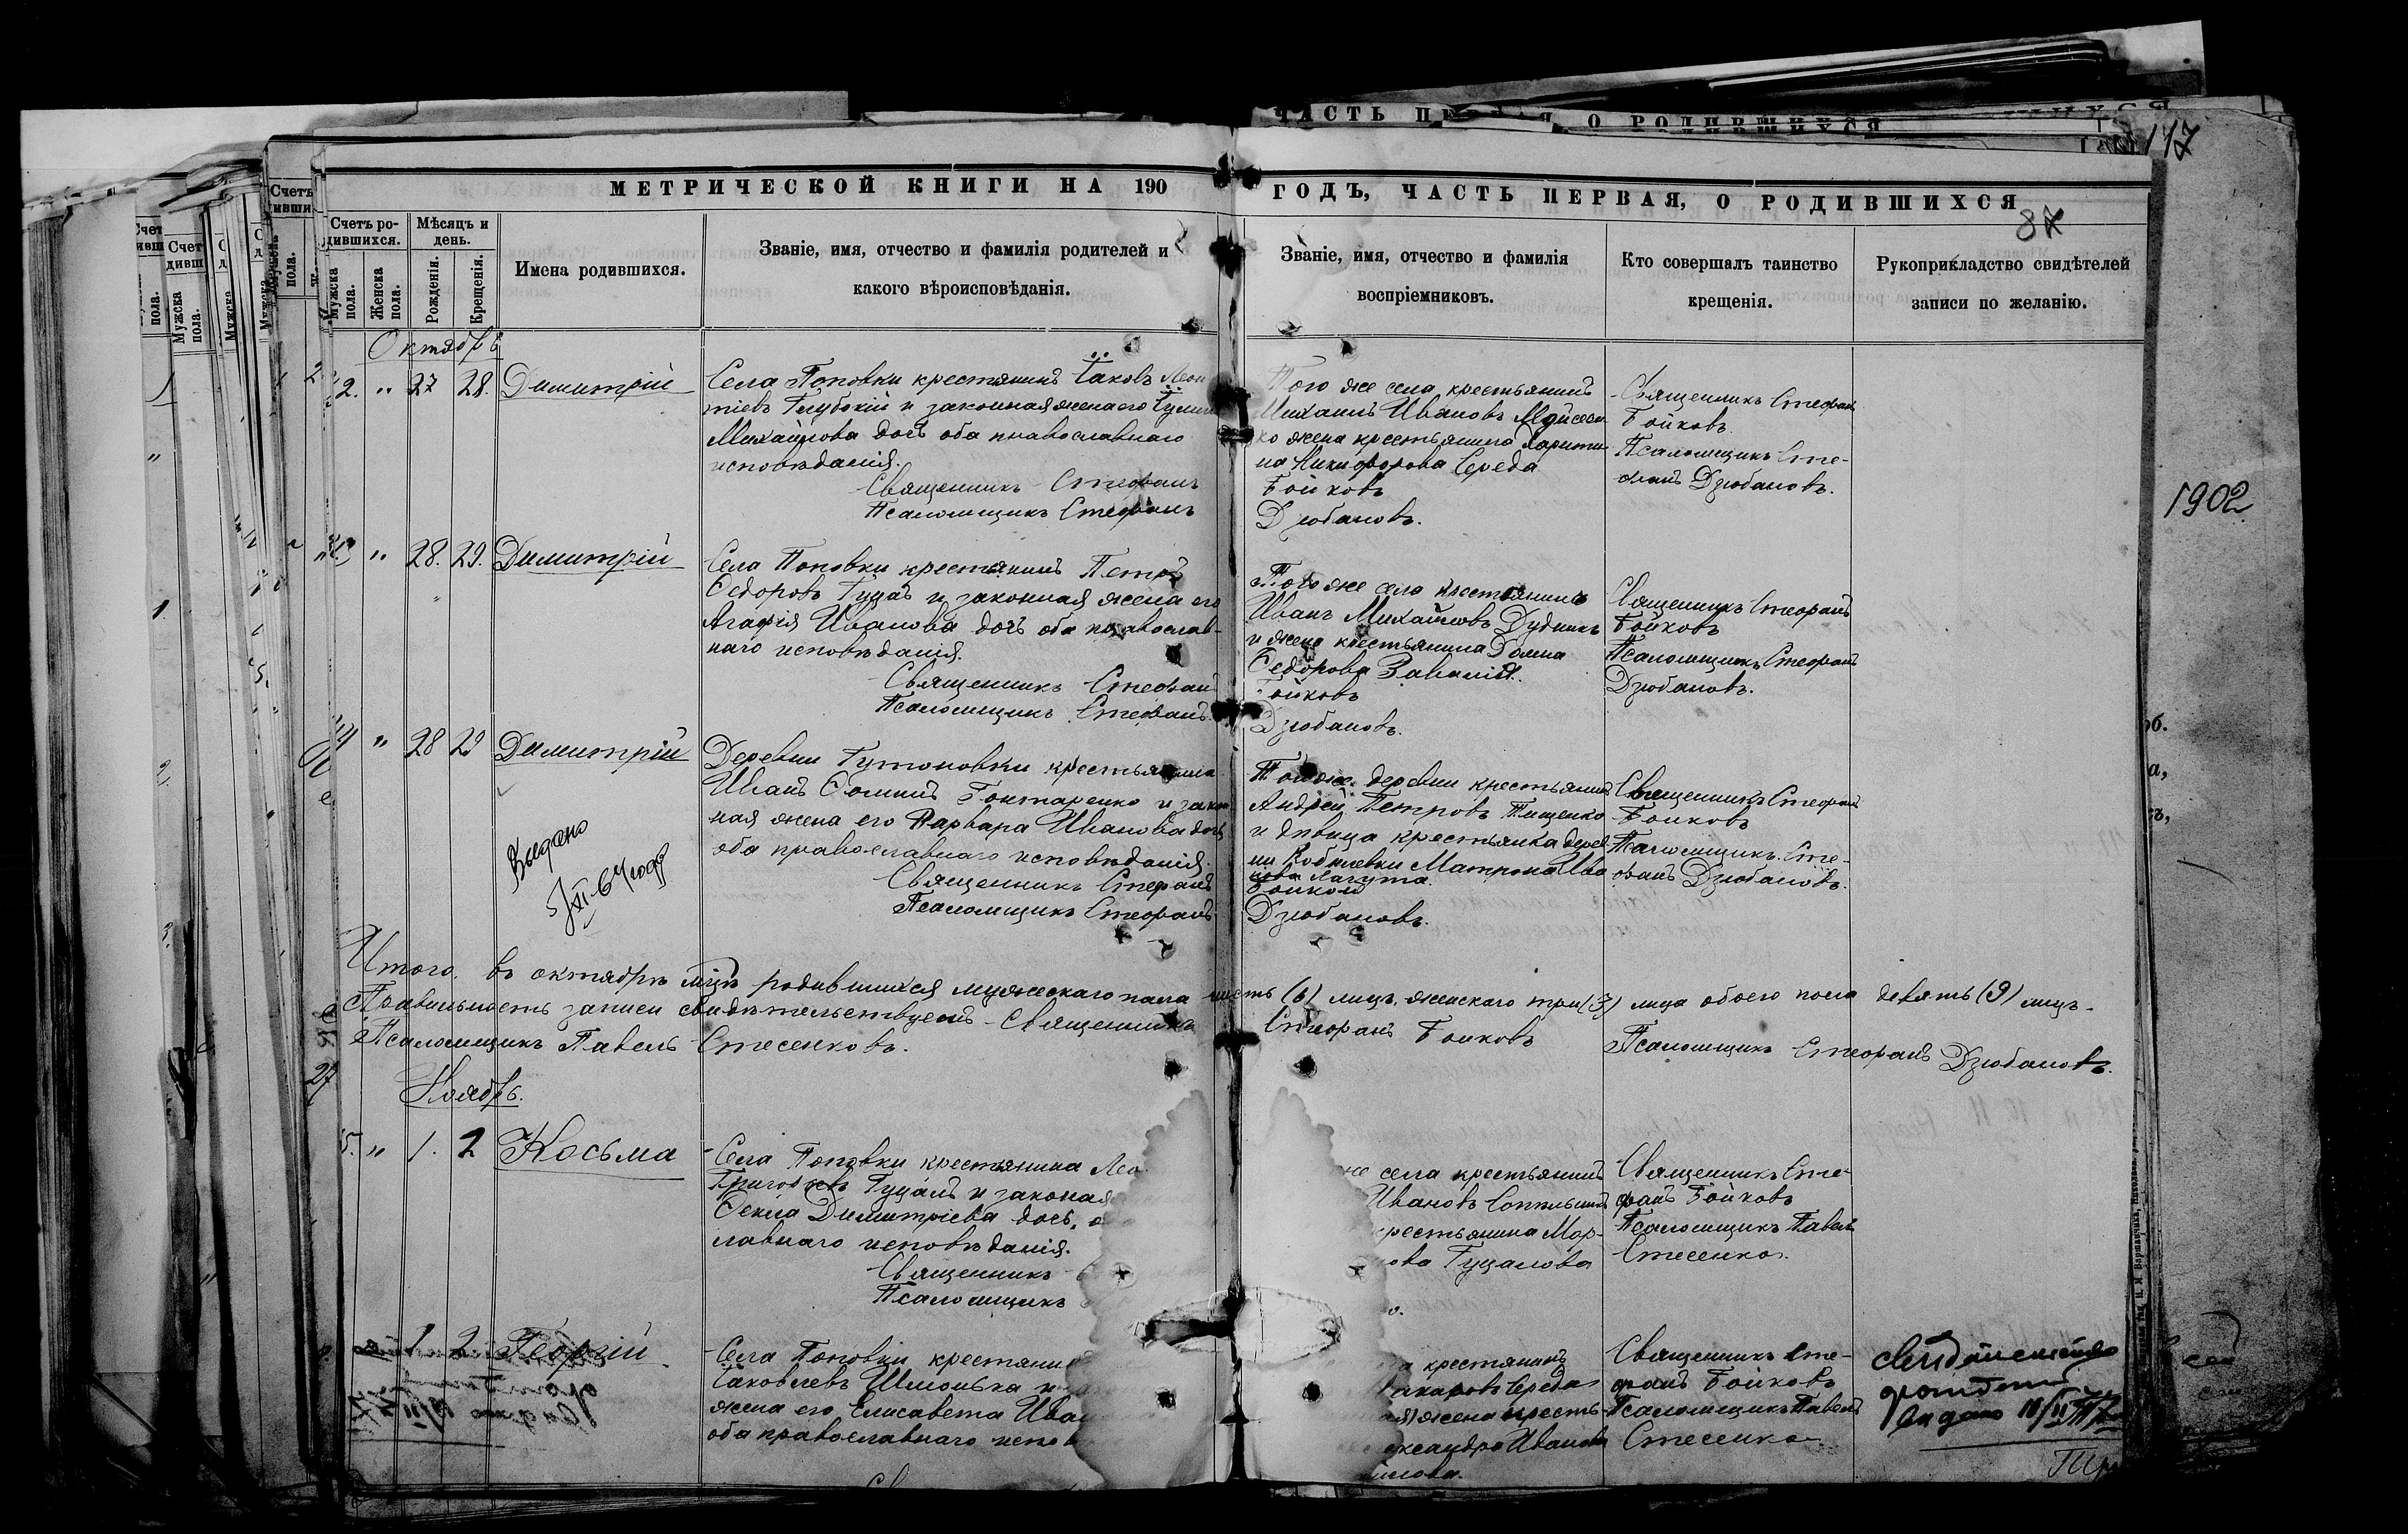 ЧАСТЬ ПЕРВАЯ, О РОДИВШИХСЯ
117
МЕТРИЧЕСКОЙ КНИГИ НА 190
ГОДЪ, ЧАСТЬ ПЕРВАЯ, О РОДИВШИХСЯ
87
Счетъ родившихся.
Мужска пола.
Женска пола.
Мѣсяцъ и день.
Рожденія.
Крещенія.
Имена родившихся.
Званіе, имя, отчество и фамилія родителей и
какого вѣроисповѣданія.
Званіе, имя, отчество и фамилія
воспріемниковъ.
Кто совершалъ таинство
крещенія.
Рукоприкладство свидѣтелей
записи по желанію.
1902
Октябрь
2. " 27 28. Димитрій
Села Поповки крестянинъ Іаковъ Леон
тіевъ Глубокій и законная жена его
Михайлова дочь оба православнаго
исповѣданія.
Священникъ Стефанъ
Псаломщикъ Стефанъ
Того же села крестьянинъ
Михаилъ Ивановъ Мойсеен
ко жена крестьянина Харити
на Никифорова Середа
Бойковъ
Дзюбановъ.
Священникъ Стефанъ
Бойковъ
Псаломщикъ Сте-
фанъ Дзюбановъ.
" 28. 29. Димитрій
Села Поповки крестянинъ Петръ
Ѳедоровъ Гуцалъ и законная жена его
Агафія Иванова дочь оба православ-
наго исповѣданія.
Священникъ Стефанъ
Псаломщикъ Стефанъ
Того же села крестянинъ
Иванъ Михайловъ Дудникъ
и жена крестьянина Домна
Ѳедорова
Бойковъ
Дзюбановъ.
Священникъ Стефанъ
Бойковъ
Псаломщикъ Стефанъ
Дзюбановъ.
" 28 29 Димитрій
Выдано
Деревни Гутоновки крестьянина
Иванъ Ѳоминъ Гонтаренко и закон
ная жена его Варвара Иванова дочь
оба православнаго исповѣданія.
Священникъ Стефанъ
Псаломщикъ Стефанъ
Той же деревни крестьянинъ
Андрей Петровъ Тищенко
и дѣвица крестьянка дерев
ни Кобилевки Матрона Ива
нова
Бойковъ
Дзюбановъ.
Священникъ Стефанъ
Бойковъ
Псаломщикъ Сте-
фанъ Дзюбановъ.
Итого въ октябрѣ мцѣ родившихся мужескаго пола шесть (6) лицъ, женскаго три (3) лица обоего пола девять (9) лицъ.
Правильность записи свидѣтельствуемъ - Священникъ Стефанъ Бойковъ
Псаломщикъ Павелъ Стесенковъ.
Псаломщикъ Стефанъ Дзюбановъ.
Ноябрь.
5. " 1. 2 Косьма
Села Поповки крестянина Лео
Григорьевъ Гуцалъ и законая
Ѳекла Димитріева дочь, о
славнаго исповѣданія.
Священникъ
Псаломщикъ
же села крестьянинъ
Ивановъ
крестьянина Мар-
ова Гуцалова
Священникъ Сте-
фанъ Бойковъ
Псаломщикъ Павелъ
Стесенко.
1 2 Георгій
Села Поповки крестянин
Іаковлевъ Шмонька и
жена его Елисавета Иван
оба православнаго испов
крестянинъ
Макаровъ Середа
жена кресть-
лександра Иванова
Священникъ Сте-
фанъ Бойковъ
Псаломщикъ Павелъ
Стесенко
рождении
выдано